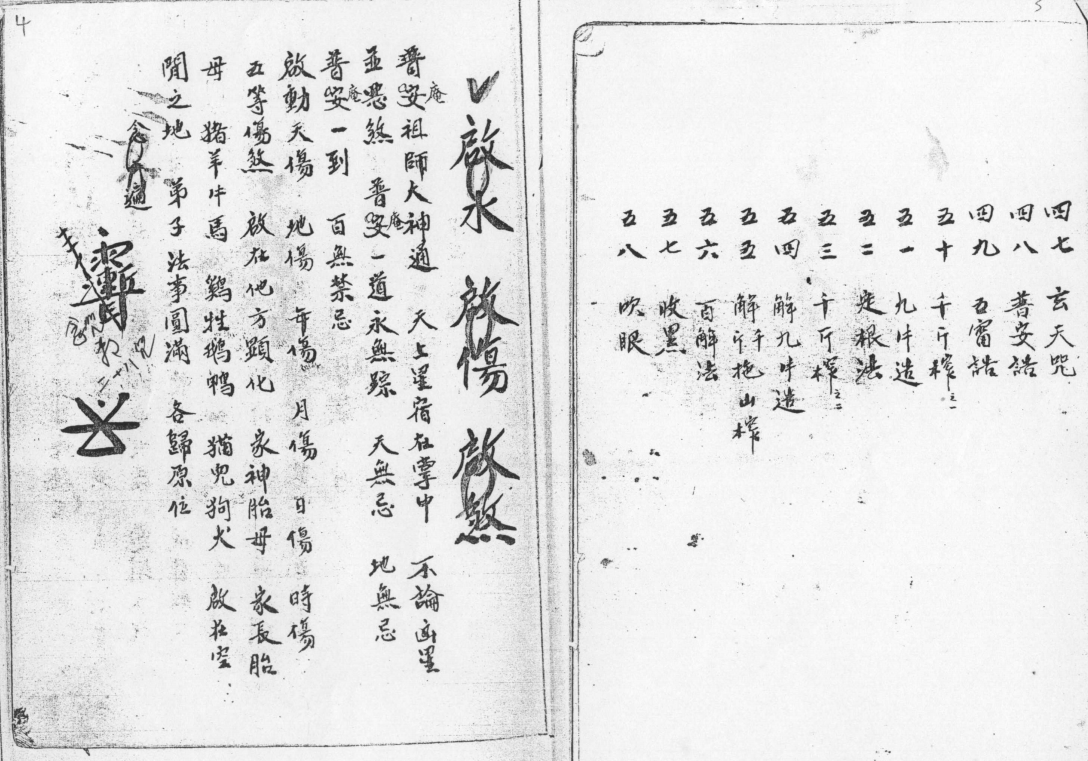 5
四七 玄天咒
四八 普安誥
四九 五雷誥
五十 千斤榨之一
五一 九牛造
五二 走根法
五三 千斤榨之二
五四 解九牛造
五五 解千斤拖山榨
五六 百解法
五七 收黑
五八 吹眼
4
啟水 啟傷 啟煞
普安庵祖師大神通 天上星宿在掌中 不論凶星
並惡煞 普安庵一道永無踪 天無忌 地無忌
普安庵一到 百無禁忌
啟動天傷 地傷 年傷 月傷 日傷 時傷
五等傷煞 啟在他方顕化 家神胎母 家長胎
母 猪羊牛馬 鷄牲鵝鸭 猫児狗犬 啟在空
閒之地 弟子法事圓滿 各歸原位